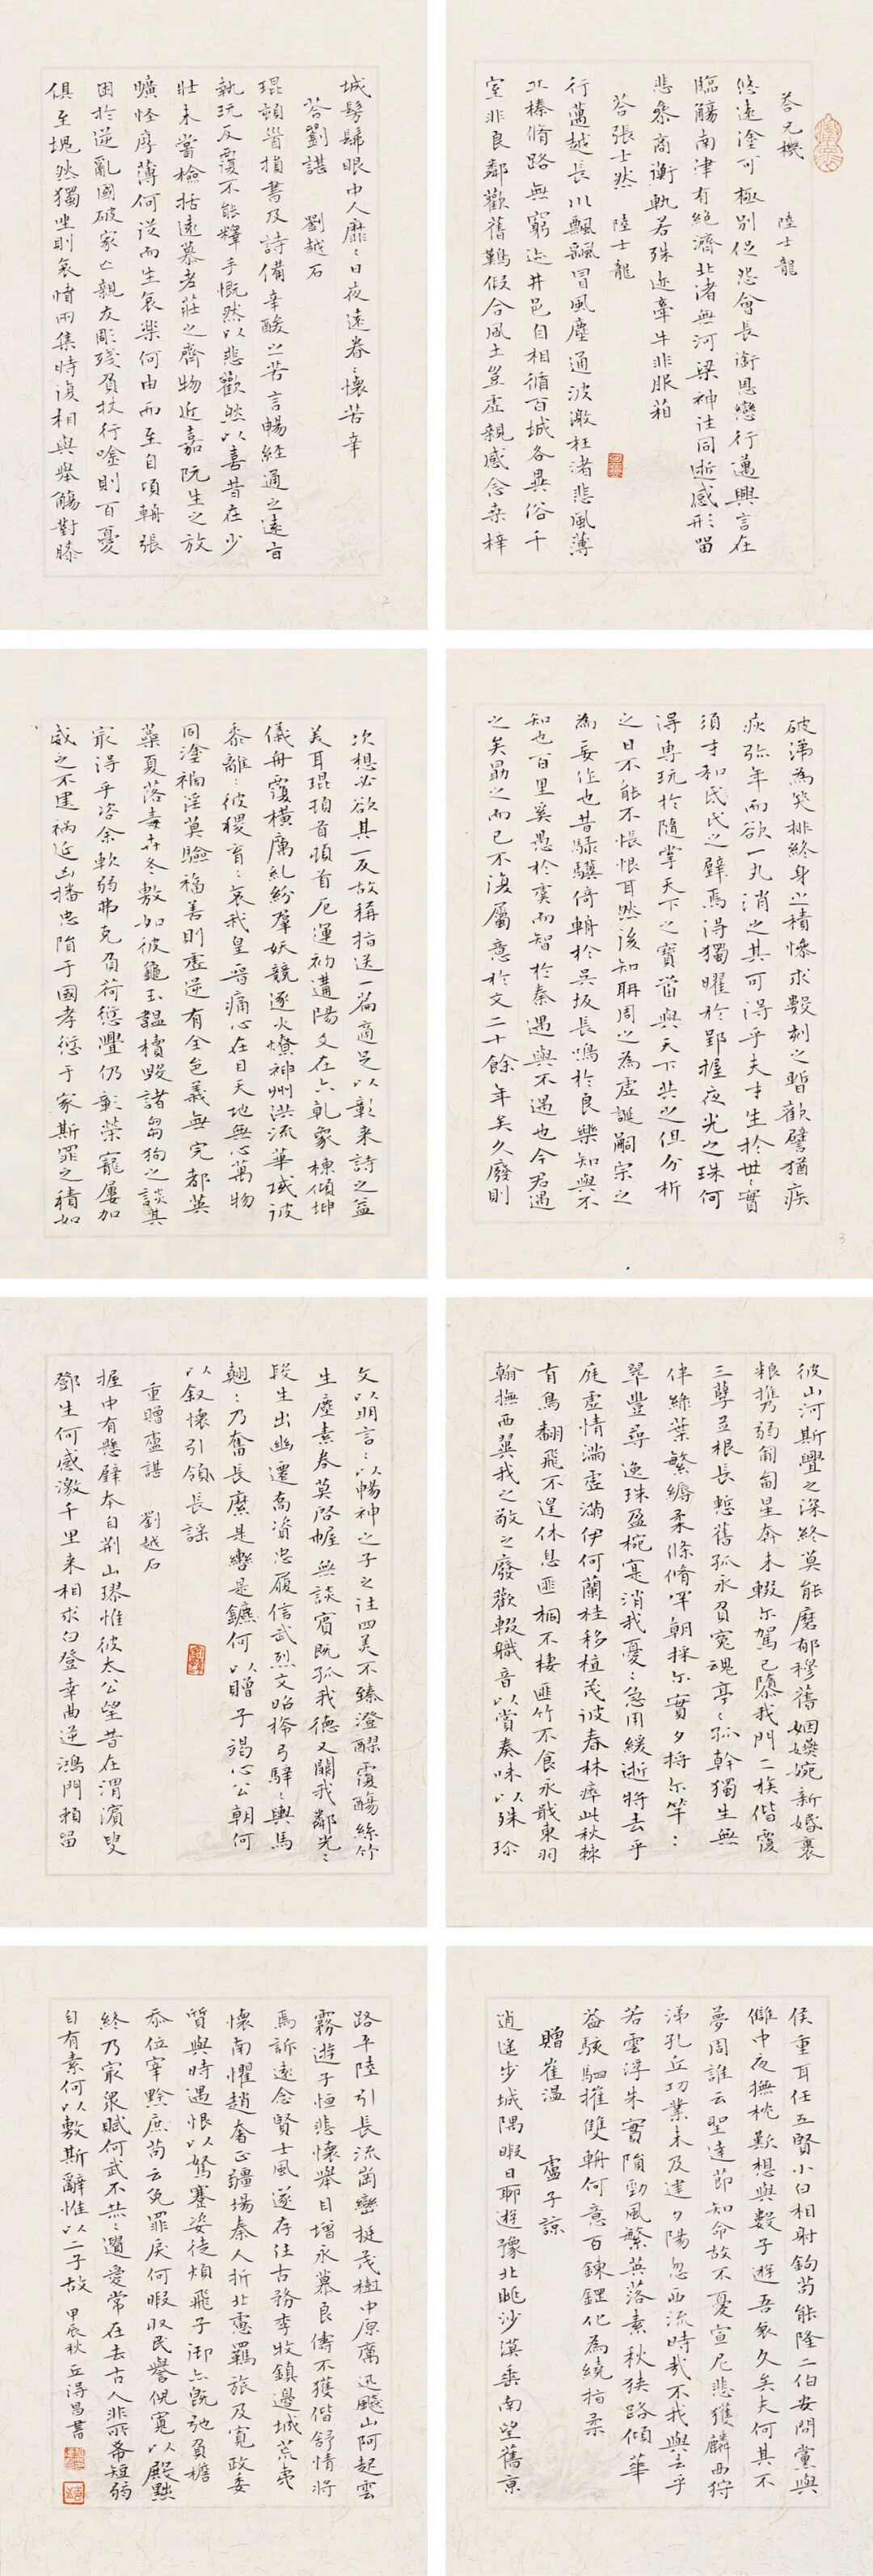 荅兄機 陸士龍
悠遠塗可極別促怨會長銜恩戀行邁興言在
臨觴南津有絕濟北渚無河梁神往同逝感形留
悲參商衡軌若殊迹牽牛非服箱
荅張士然 陸士龍
行邁越長川飄颻冒風塵通波激枉渚悲風薄
丘榛脩路無窮迹井邑自相循百城各異俗千
室非良鄰歡舊難假合風土豈虛親感念桑梓
城髣髴眼中人靡〻日夜遠眷〻懷苦辛
荅劉諶 劉越石
琨頓首損書及詩備辛酸之苦言暢經通之遠旨
執玩反覆不能釋手慨然以悲歡然以喜昔在少
壯未嘗檢括遠慕老莊之齊物近嘉阮生之放
曠怪厚薄何從而生哀樂何由而至自頃輈張
困於逆亂國破家亡親友彫殘負杖行唫則百憂
俱至塊然獨坐則哀憤兩集時復相與舉觴對膝
破涕為笑排終身之積慘求數刻之暫歡譬猶疾
疢弥年而欲一丸消之其可得乎夫才生於世〻實
須才和氏氏之璧焉得獨曜於郢握夜光之珠何
得專玩於隨掌天下之寶當與天下共之但分析
之日不能不悵恨耳然後知聃周之為虛誕嗣宗之
為妄作也昔騄驥倚輈於吳坂長鳴於良樂知與不
知也百里奚愚於虞而智於秦遇與不遇也今君遇
之矣勗之而已不復屬意於文二十餘年矣久廢則
次想必欲其一反故稱指送一篇適足以彰来詩之益
美耳琨頊首頓首厄運初遘陽爻在六乹象棟傾坤
儀舟覆橫厲糺紛羣妖競逐火燎神州洪流華域彼
黍離〻彼稷育〻哀我皇晉痛心在目天地無心萬物
同塗禍淫莫驗福善則虛逆有全邑義無完都英
蘂夏落毒卉冬敷如彼龜玉韞櫝毀諸芻狗之談其
最得乎咨余軟弱弗克負荷愆舋仍彰榮寵屢加
威之不建禍延凶播忠隕于國孝愆于家斯罪之積如
彼山河斯舋之深終莫能磨郁穆舊姻嬿婉新婚裹
粮携弱匍匐星奔未輟尓駕已隳我門二族偕覆
三孽並根長慙舊孤永負冤魂亭〻孤幹獨生無
伴綠葉繁縟柔條脩罕朝採尓實夕捋尓竿〻
翠豐尋逸珠盈椀寔消我憂〻急用緩逝將去乎
庭虛情滿虛滿伊何蘭桂移植茂彼春林瘁此秋棘
有鳥翻飛不遑休息匪桐不棲匪竹不食永戢東羽
翰撫西翼我之敬之廢歡輟職音以賞奏味以殊珍
文以明言〻以暢神之子之往四美不臻澄醪覆觴絲竹
生塵素卷莫啓幄無談賓既孤我德又闕我鄰光〻
段生出幽遷喬資忠履信武烈文昭旍弓騂〻輿馬
翹〻乃奮長縻是轡是鑣何以贈子竭心公朝何
以叙懷引領長謡
重贈盧諶 劉越石
握中有懸璧本自荆山璆惟彼太公望昔在渭濱叟
鄧生何感激千里来相求白登幸曲逆鴻門賴留
侯重耳任五賢小白相射鉤苟能隆二伯安問黨與
讎中夜撫枕歎想與數子遊吾衰久矣夫何其不
夢周誰云聖達節知命故不憂宣尼悲獲麟西狩
涕孔丘功業未及建夕陽忽西流時哉不我與去乎
若雲浮朱實隕勁風繁英落素秋狹路傾華
蓋駭駟摧雙輈何意百鍊鋼化為繞指柔
贈崔温 盧子諒
逍遥步城隅暇日聊遊豫北眺沙漠垂南望舊京
路平陸引長流崗巒挺茂樹中原厲迅飈山阿起雲
霧遊子恒悲懷舉目增永慕良儔不獲偕舒情將
焉訴遠念賢士風遂存往古務李牧鎮邊城荒夷
懷南懼趙奢正疆場秦人折北慮羈旅及寬政委
質與時遇恨以駑蹇姿徒煩飛子御亦既弛負檐
忝位宰黔庶苟云免罪戾何暇収民譽倪寬以殿黜
終乃最衆賦何武不赫〻遺愛常在去古人非所希短弱
自有素何以敷斯辭惟以二子故 甲辰秋 丘得昌書